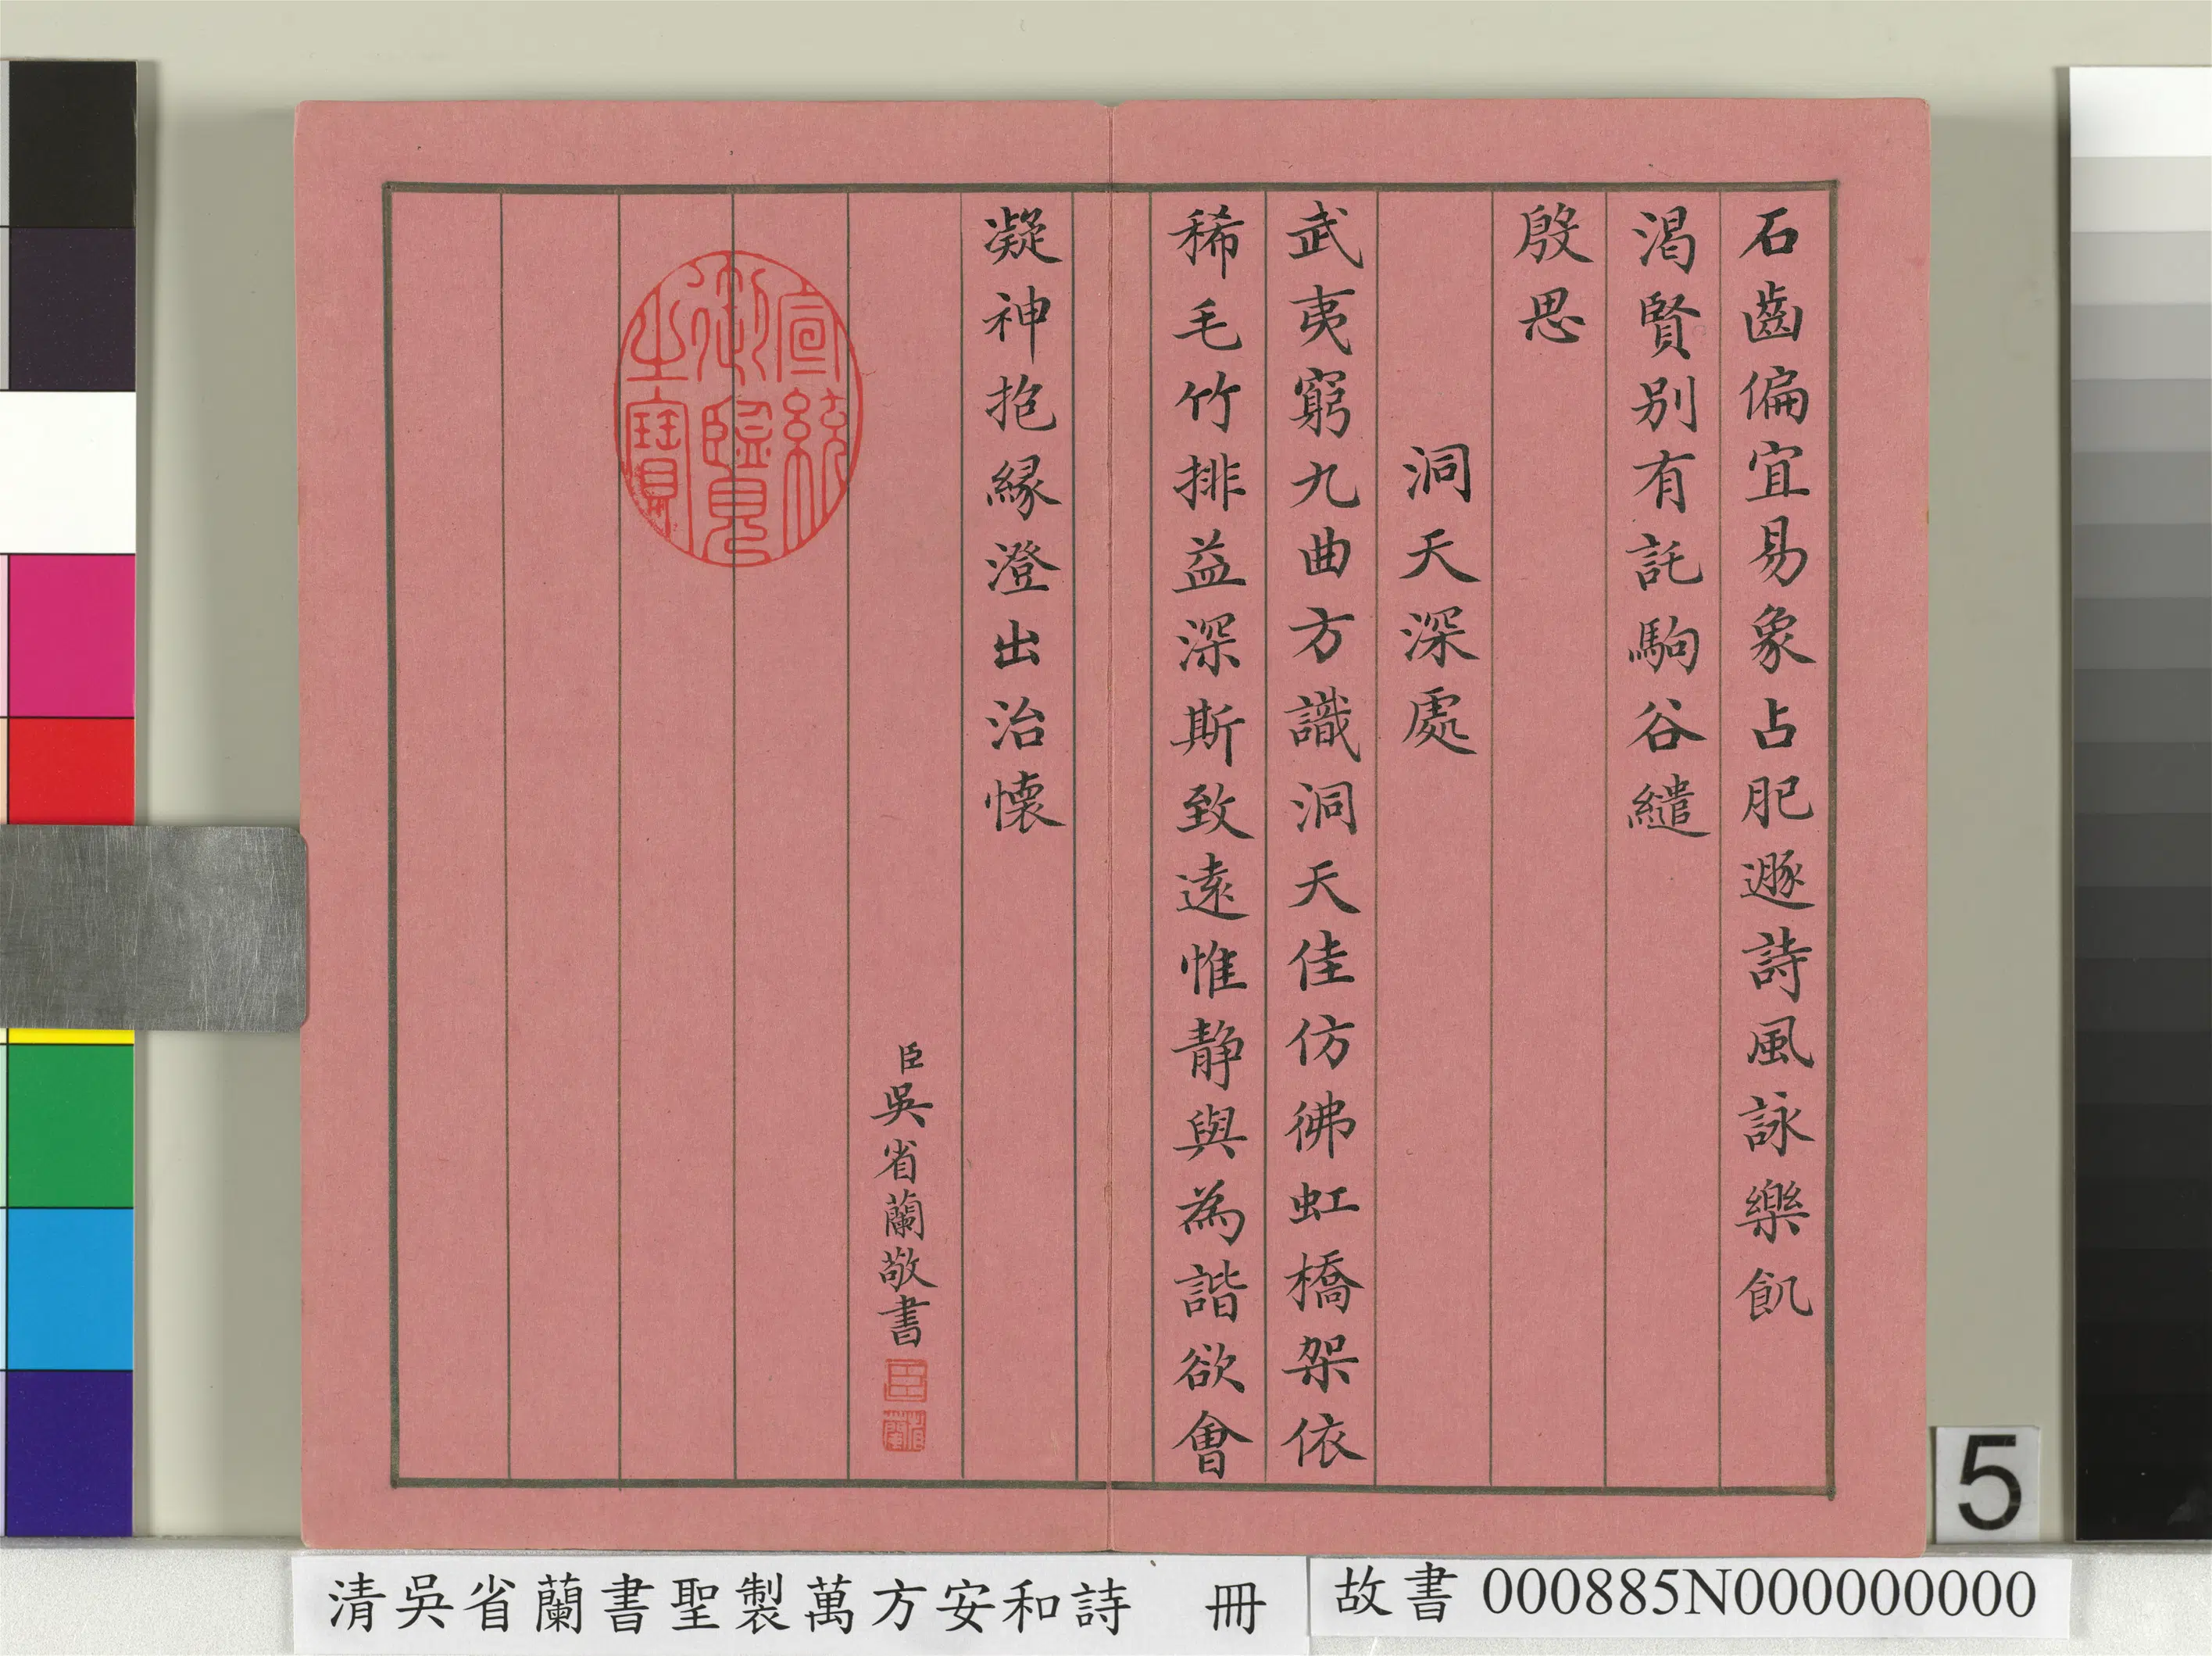 石齒偏宜易象占肥遯詩風詠樂飢
渴賢别有託駒谷繾
殷思
洞天深處
武夷窮九曲方識洞天佳仿彿虹橋架依
稀毛竹排益深斯致遠惟靜與為諧欲會
凝神抱緣澄出治懷
臣吳省蘭敬書
臣
省蘭
宣統御覽之寶
5
清吳省蘭書聖製萬方安和詩 冊
故書 000885N000000000